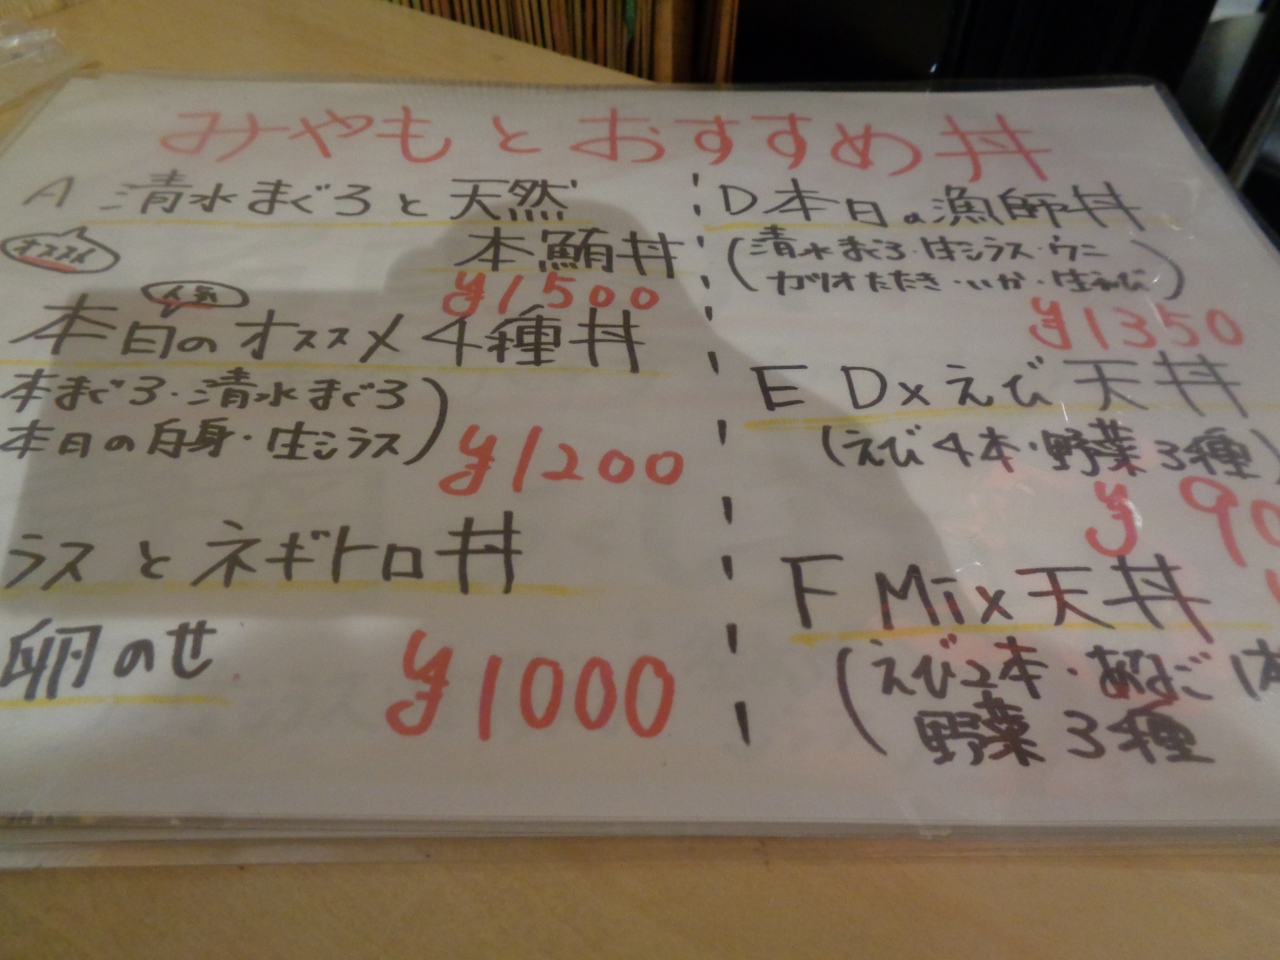 みやもとおすすめ丼
A 清水まぐろと天然
オススメ
本鮪丼
¥1500
人気
本日のオススメ4種丼
本まぐろ・清水まぐろ
本日の白身・生シラス)
¥1200
ラスとネギトロ丼
卵のせ
¥1000
D本日の漁師丼
(清水まぐろ・生シラス・ウニ
カツオたたき・いか・生えび)
¥1350
E Dxえび天丼
(えび4本・野菜3種)
¥90
F Mix天丼
(えび2本・あなご1本
野菜3種